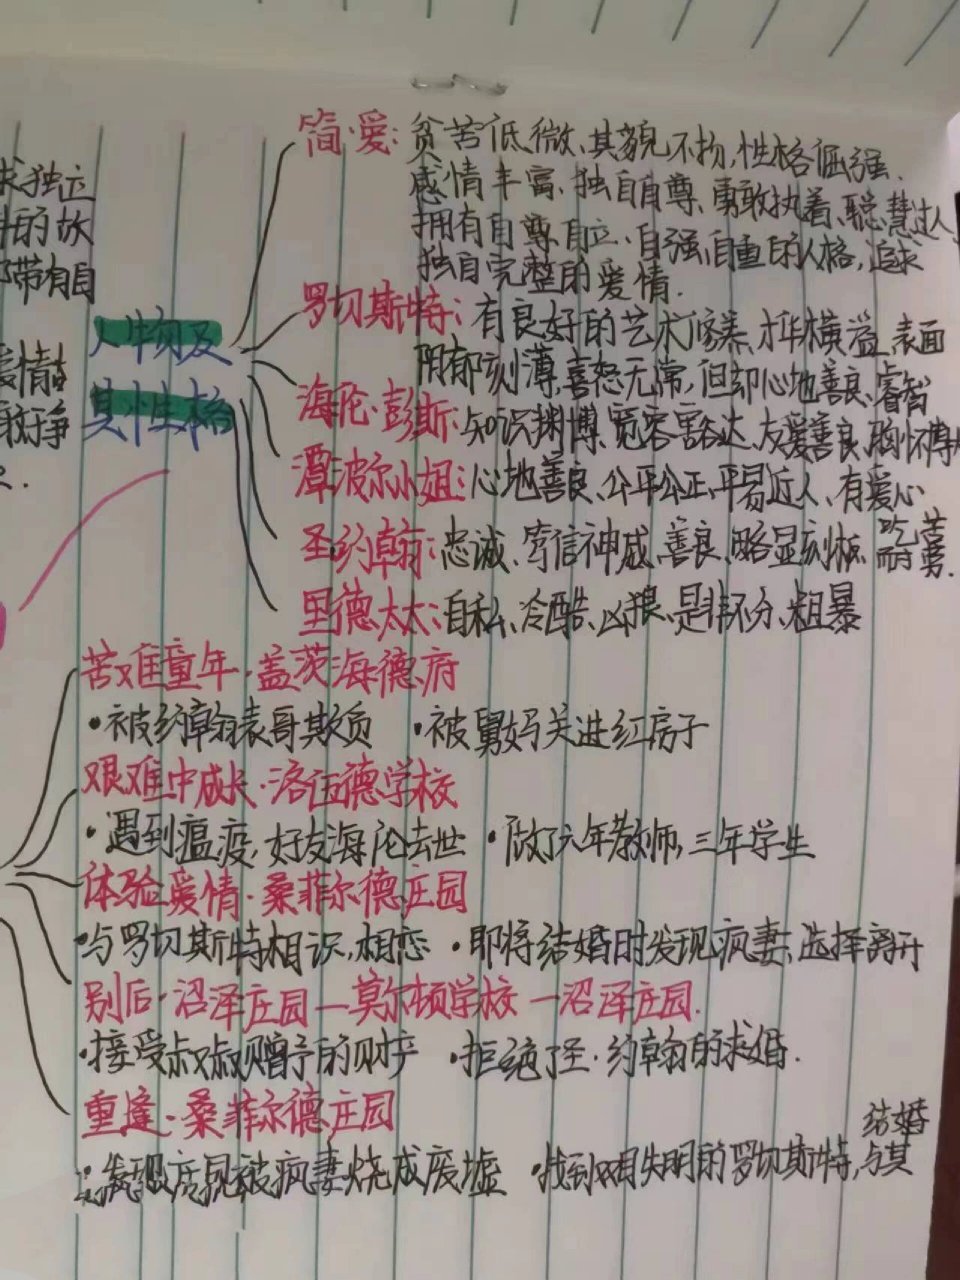 求独立
的故
带有自
爱情
敢于争
人物及
其性格
简·爱:贫苦低微、其貌不扬,性格倔强、
感情丰富、独自自尊、勇敢执着、聪慧过人
拥有自尊自立、自强自重的人格,追求
独自完整的爱情.
罗切斯特:有良好的艺术修养、才华横溢、表面
阴郁刻薄,喜怒无常,但却心地善良、睿智
海伦·彭斯:知识渊博、宽容豁达、友爱善良、胸怀博
潭波尔小姐:心地善良、公平公正、平易近人、有爱心
圣约翰:忠诚、笃信神威、善良、略显刻板、吃苦
耐劳.
里德太太:自私、冷酷、凶狠、是非不分、粗暴
苦难童年·盖茨海德府
·被约翰表哥欺负 ·被舅妈关进红房子
艰难中成长·洛伍德学校
·遇到瘟疫,好友海伦去世 ·做了六年教师,三年学生
体验爱情·桑菲尔德庄园
·与罗切斯特相识,相恋 ·即将结婚时发现疯妻,选择离开
别后·沼泽庄园—莫尔顿学校—沼泽庄园.
·接受叔叔赠予的财产 ·拒绝了圣·约翰的求婚.
重逢·桑菲尔德庄园
·发现庄园被疯妻烧成废墟 ·找到双目失明的罗切斯特,与其
结婚